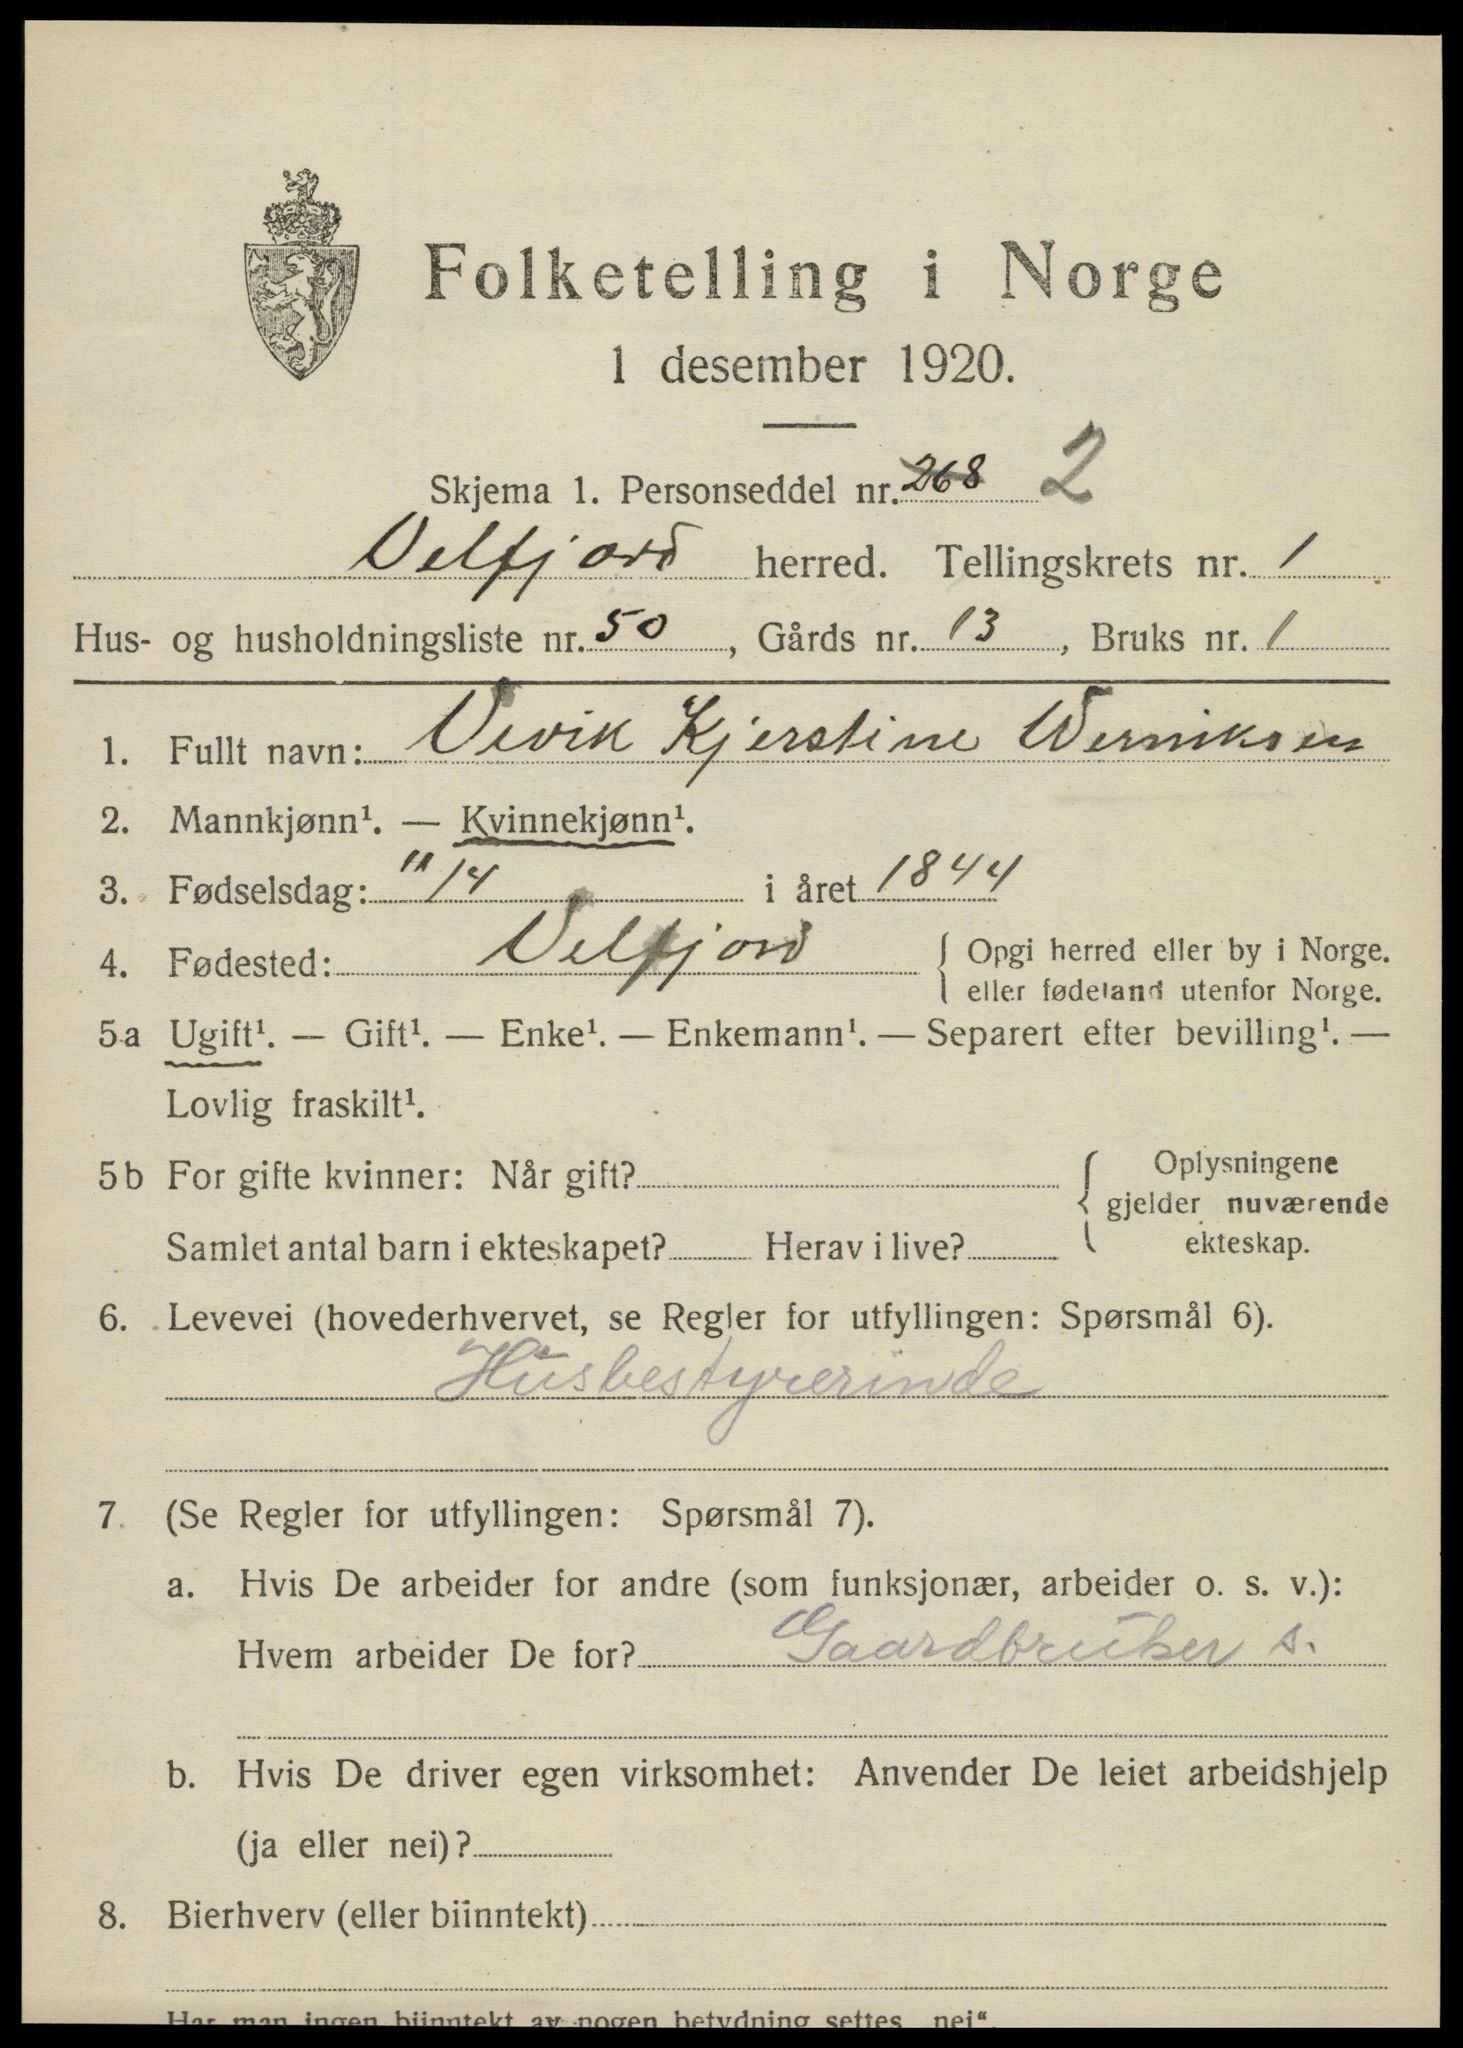 Folketelling i Norge
1 desember 1920.
Skjema 1. Personseddel nr. 268 2
Velfjord herred. Tellingskrets nr. 1
Hus- og husholdningsliste nr. 50, Gårds nr. 13, Bruks nr. 1
1. Fullt navn: Kjerstine
2. Mannkjønn¹. — Kvinnekjønn¹.
3. Fødselsdag: 11/4 i året 1844
4. Fødested: Velfjord { Opgi herred eller by i Norge.
eller fødeland utenfor Norge.
5a Ugift¹. — Gift¹. — Enke¹. — Enkemann¹. — Separert efter bevilling¹. —
Lovlig fraskilt¹.
5b For gifte kvinner: Når gift? { Oplysningene
gjelder nuværende
Samlet antal barn i ekteskapet? Herav i live? ekteskap.
6. Levevei (hovederhvervet, se Regler for utfyllingen: Spørsmål 6).
Husbestyrerinde
7. (Se Regler for utfyllingen: Spørsmål 7).
a. Hvis De arbeider for andre (som funksjonær, arbeider o. s. v.):
Hvem arbeider De for? Gaardbruker s.
b. Hvis De driver egen virksomhet: Anvender De leiet arbeidshjelp
(ja eller nei)?
8. Bierhverv (eller biinntekt)
Har man ingen biinntekt av nogen betydning settes „nei“.